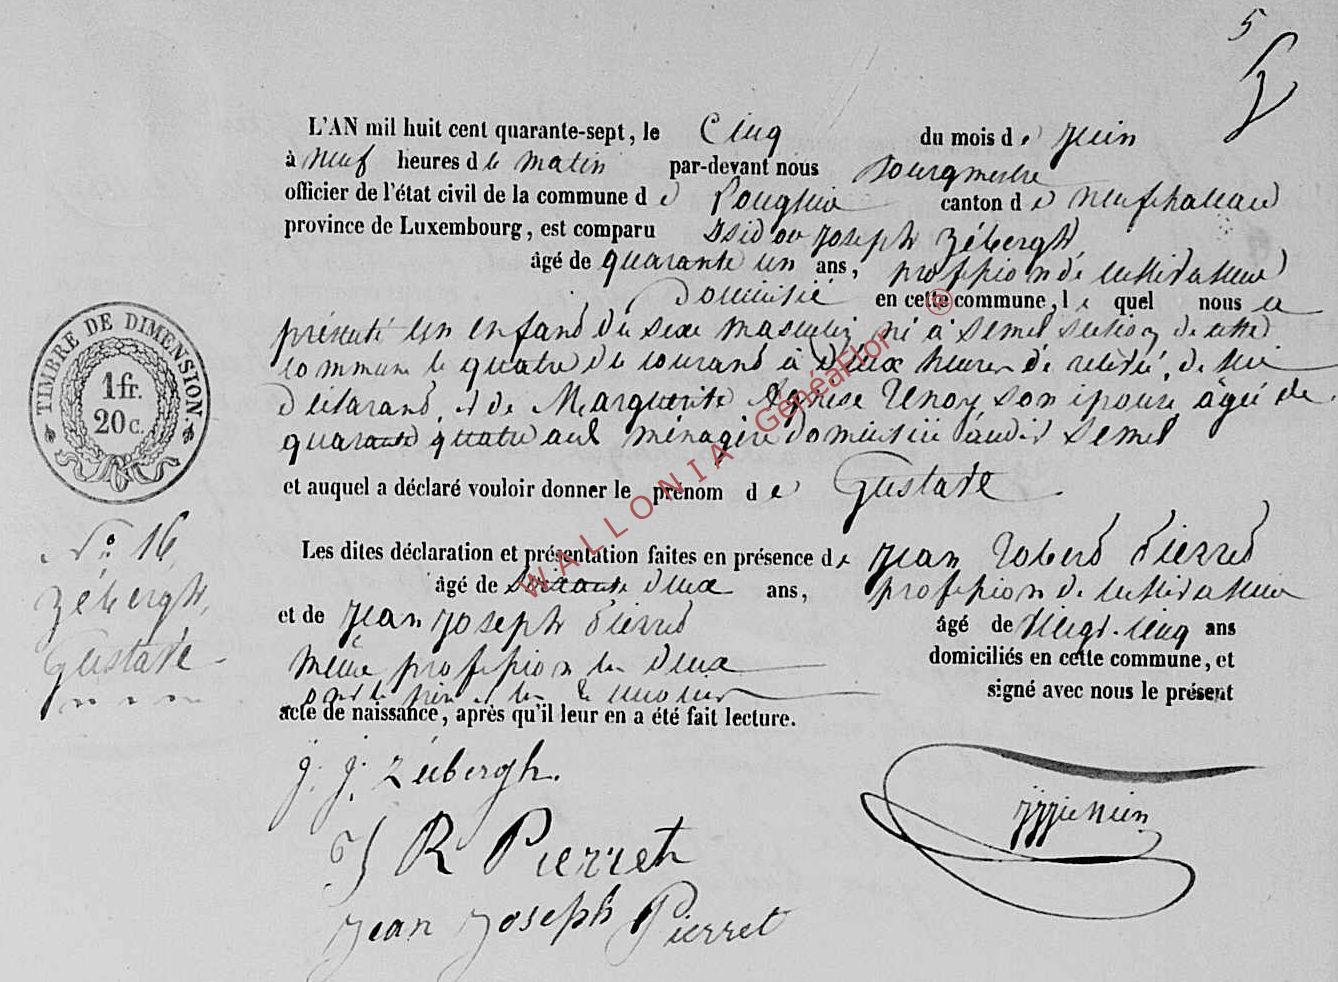 5
L'AN mil huit cent quarante-sept, le Cinq du mois de juin
à neuf heures de matin par-devant nous Bourgmestre
officier de l'état civil de la commune de canton de neufchateau
province de Luxembourg, est comparu Isidore joseph Zébergh
âgé de quarante un ans, profession de cultivateur
Domicilié en cette commune, le quel nous a
présenté un enfant du sexe masculin né à Semel section de cette
commune le quatre du courant à Deux heures de relevé, de lui
Déclarant, et de Marguerite Agnese son epouse, âgée de
quarante quatre ans ménagère domiciliée audit Semel
et auquel a déclaré vouloir donner le prénom de Gustave
Les dites déclaration et présentation faites en présence de jean Robert Pierret
âgé de soixante deux ans, profession de cultivateur
et de jean joseph Pierret âgé de Vingt-cinq ans
même profession les deux domiciliés en cette commune, et
signé avec nous le présent
acte de naissance, après qu'il leur en a été fait lecture.
TIMBRE DE DIMENSION
1 fr.
20 c.
N° 16
Zébergh,
Gustave
j. j. Zébergh.
J R Pierret
jean joseph Pierret
WALLONIA GénéaFlor ®